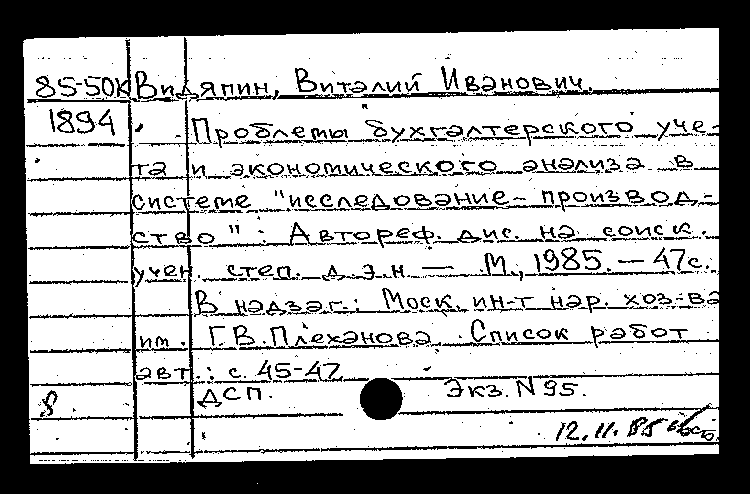 85-50К Видяпин, Виталий Иванович.
1894 Проблемы бухгалтерского уче-
та и экономического анализа в
системе "исследование-производ-
ство": Автореф. дис. на соиск.
учен. степ. д.э.н — М., 1985. — 47с.
В надзаг.: Моск. ин-т нар. хоз-ва
им. Г.В. Плеханова. Список работ
авт.: с. 45-47
8. ДСП. Экз. N 95.
12.11.85